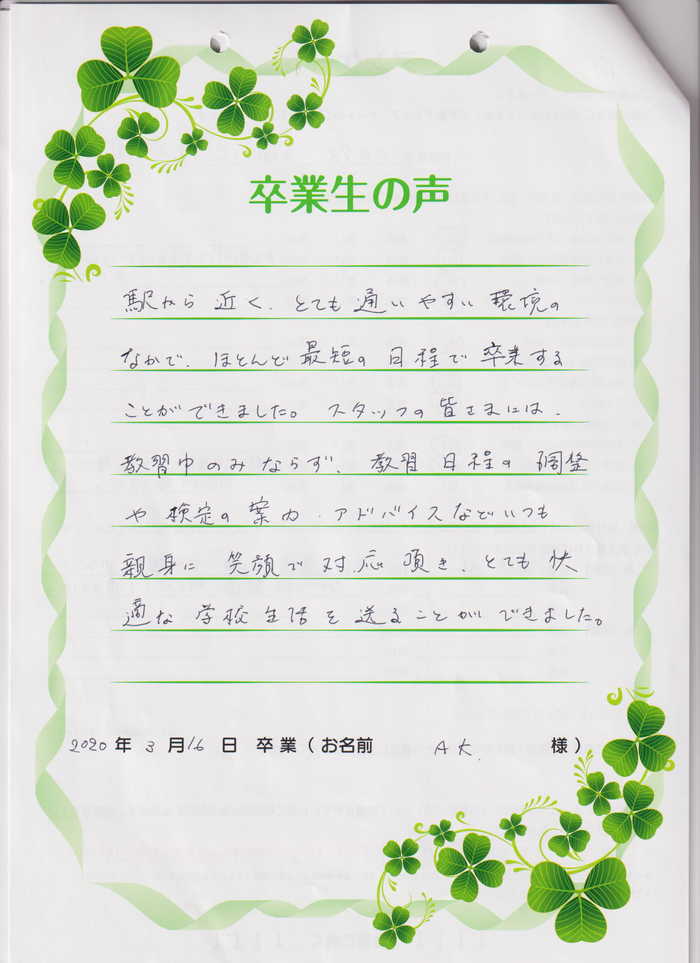 卒業生の声
駅から近く、とても通いやすい環境の
なかで、ほとんど最短の日程で卒業する
ことができました。スタッフの皆さまには、
教習中のみならず、教習日程の調整
や検定の案内、アドバイスなどいつも
親身に笑顔で対応頂き、とても快
適な学校生活を送ることができました。
2020年3月16日 卒業(お名前 A.K. 様)